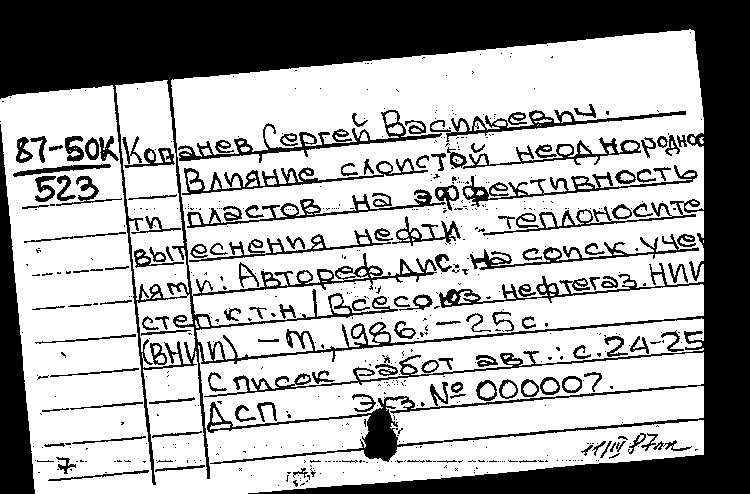 87-50К
523
Кованев, Сергей Васильевич.
Влияние слоистой неоднороднос
ти пластов на эффективность
вытеснения нефти теплоносите
лями: Автореф. дис. на соиск. учен
степ. к.т.н. / Всесоюз. нефтегаз. НИИ
(ВНИИ). – М., 1986. – 25 с.
Список работ авт.: с. 24-25
ДСП. Экз. № 000007.
7
11/III 87